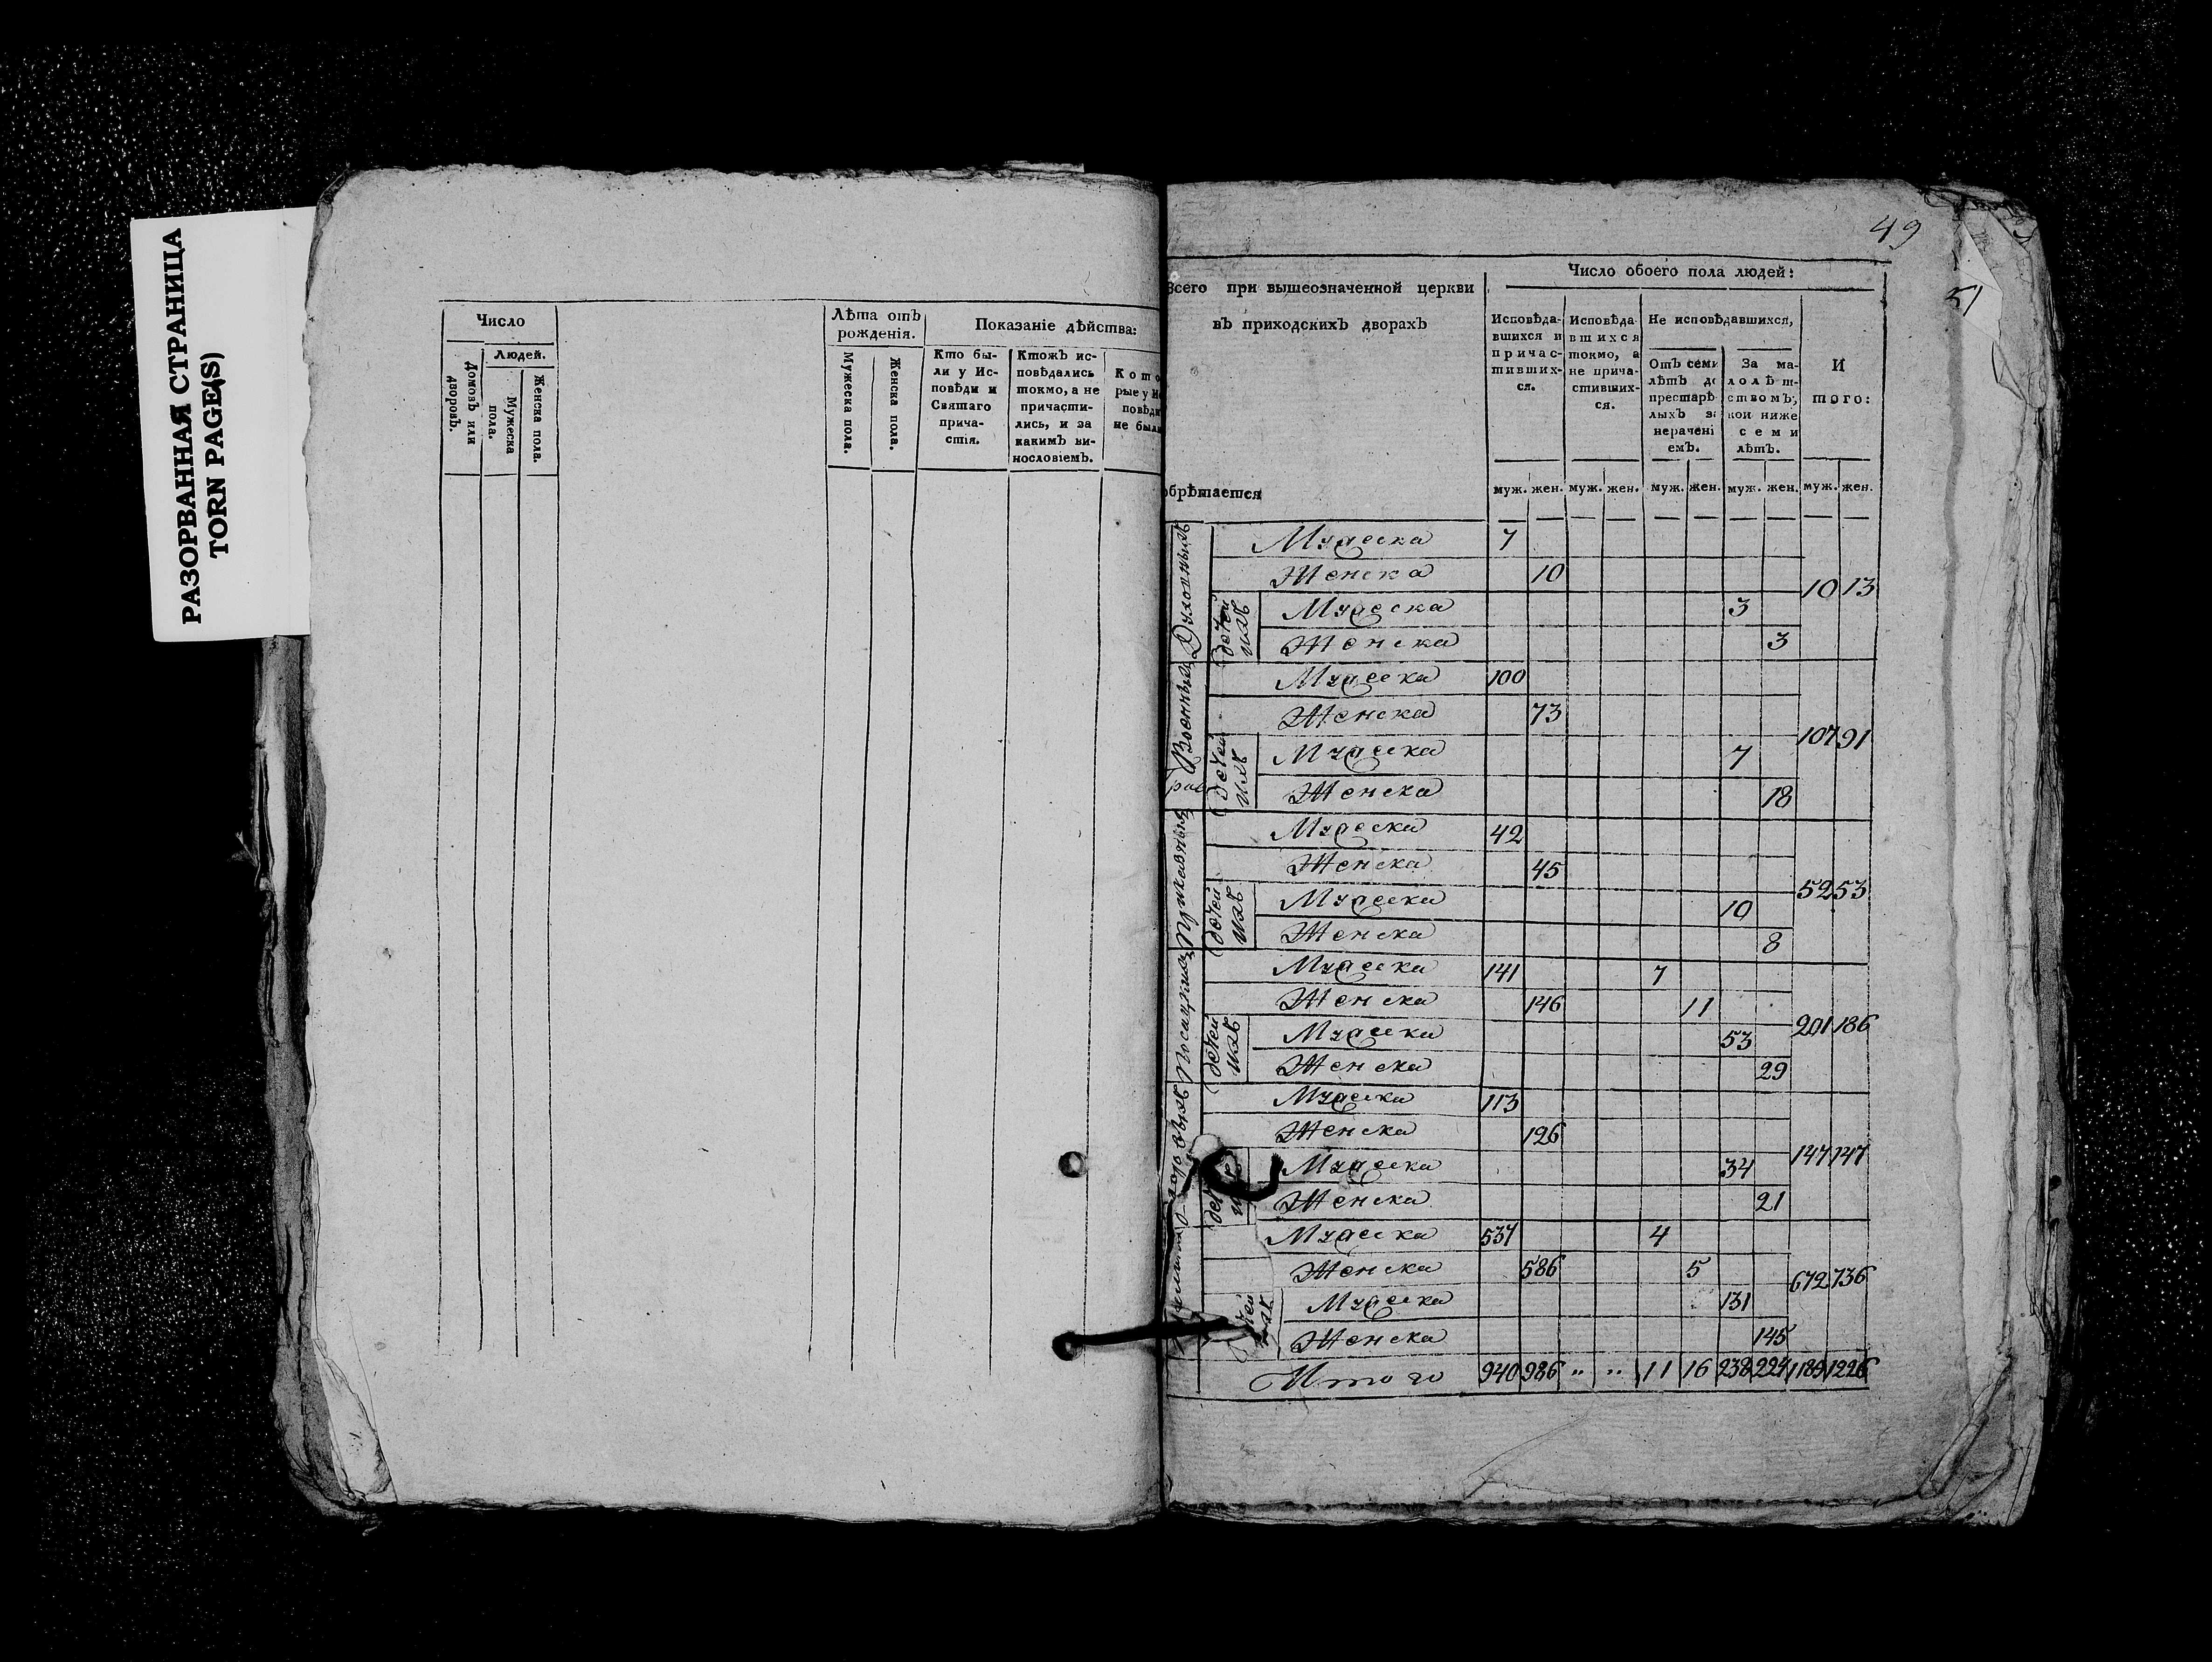 РАЗОРВАННАЯ СТРАНИЦА
TORN PAGE(S)
Число
Домовъ или дворовъ.
Людей.
Мужеска пола.
Женска пола.
Лѣта отъ
рожденія.
Мужеска пола.
Женска пола.
Показаніе дѣйства:
Кто бы-
ли у Ис-
повѣди и
Святаго
прича-
стія.
Ктожъ ис-
повѣдались
токмо, а не
причасти-
лись, и за
какимъ ви-
нословіемъ.
Кото
рые у Ис
повѣди
не были
49
51
Всего при вышеозначенной церкви
въ приходскихъ дворахъ
обрѣтается
Число обоего пола людей:
Исповѣда-
вшихся и
причас-
тивших-
ся.
Исповѣда-
вшихся
токмо, а
не прича-
стивших-
ся.
Не исповѣдавшихся,
Отъ семи
лѣтъ до
престарѣ
лыхъ за
нерачені
емъ.
За ма-
лолѣт-
ствомъ,
кои ниже
семи
лѣтъ.
И
того:
муж. жен. муж. жен. муж. жен. муж. жен. муж. жен.
Духовныхъ
Мужеска 7
Женска 10
10 13
детей ихъ
Мужеска 3
Женска 3
Военныхъ
Мужеска 100
Женска 73
107 91
детей ихъ
Мужеска 7
Женска 18
Приказныхъ
Мужеска 42
Женска 45
52 53
детей ихъ
Мужеска 10
Женска 8
Посацкихъ
Мужеска 141 7
Женска 146 11
201 186
детей ихъ
Мужеска 53
Женска 29
Мужеска 113
Женска 126
147 147
Мужеска 34
Женска 21
Мужеска 537 4
Женска 586 5
672 736
Мужеска 131
Женска 145
Итого 940 986 " " 11 16 238 224 1189 1226